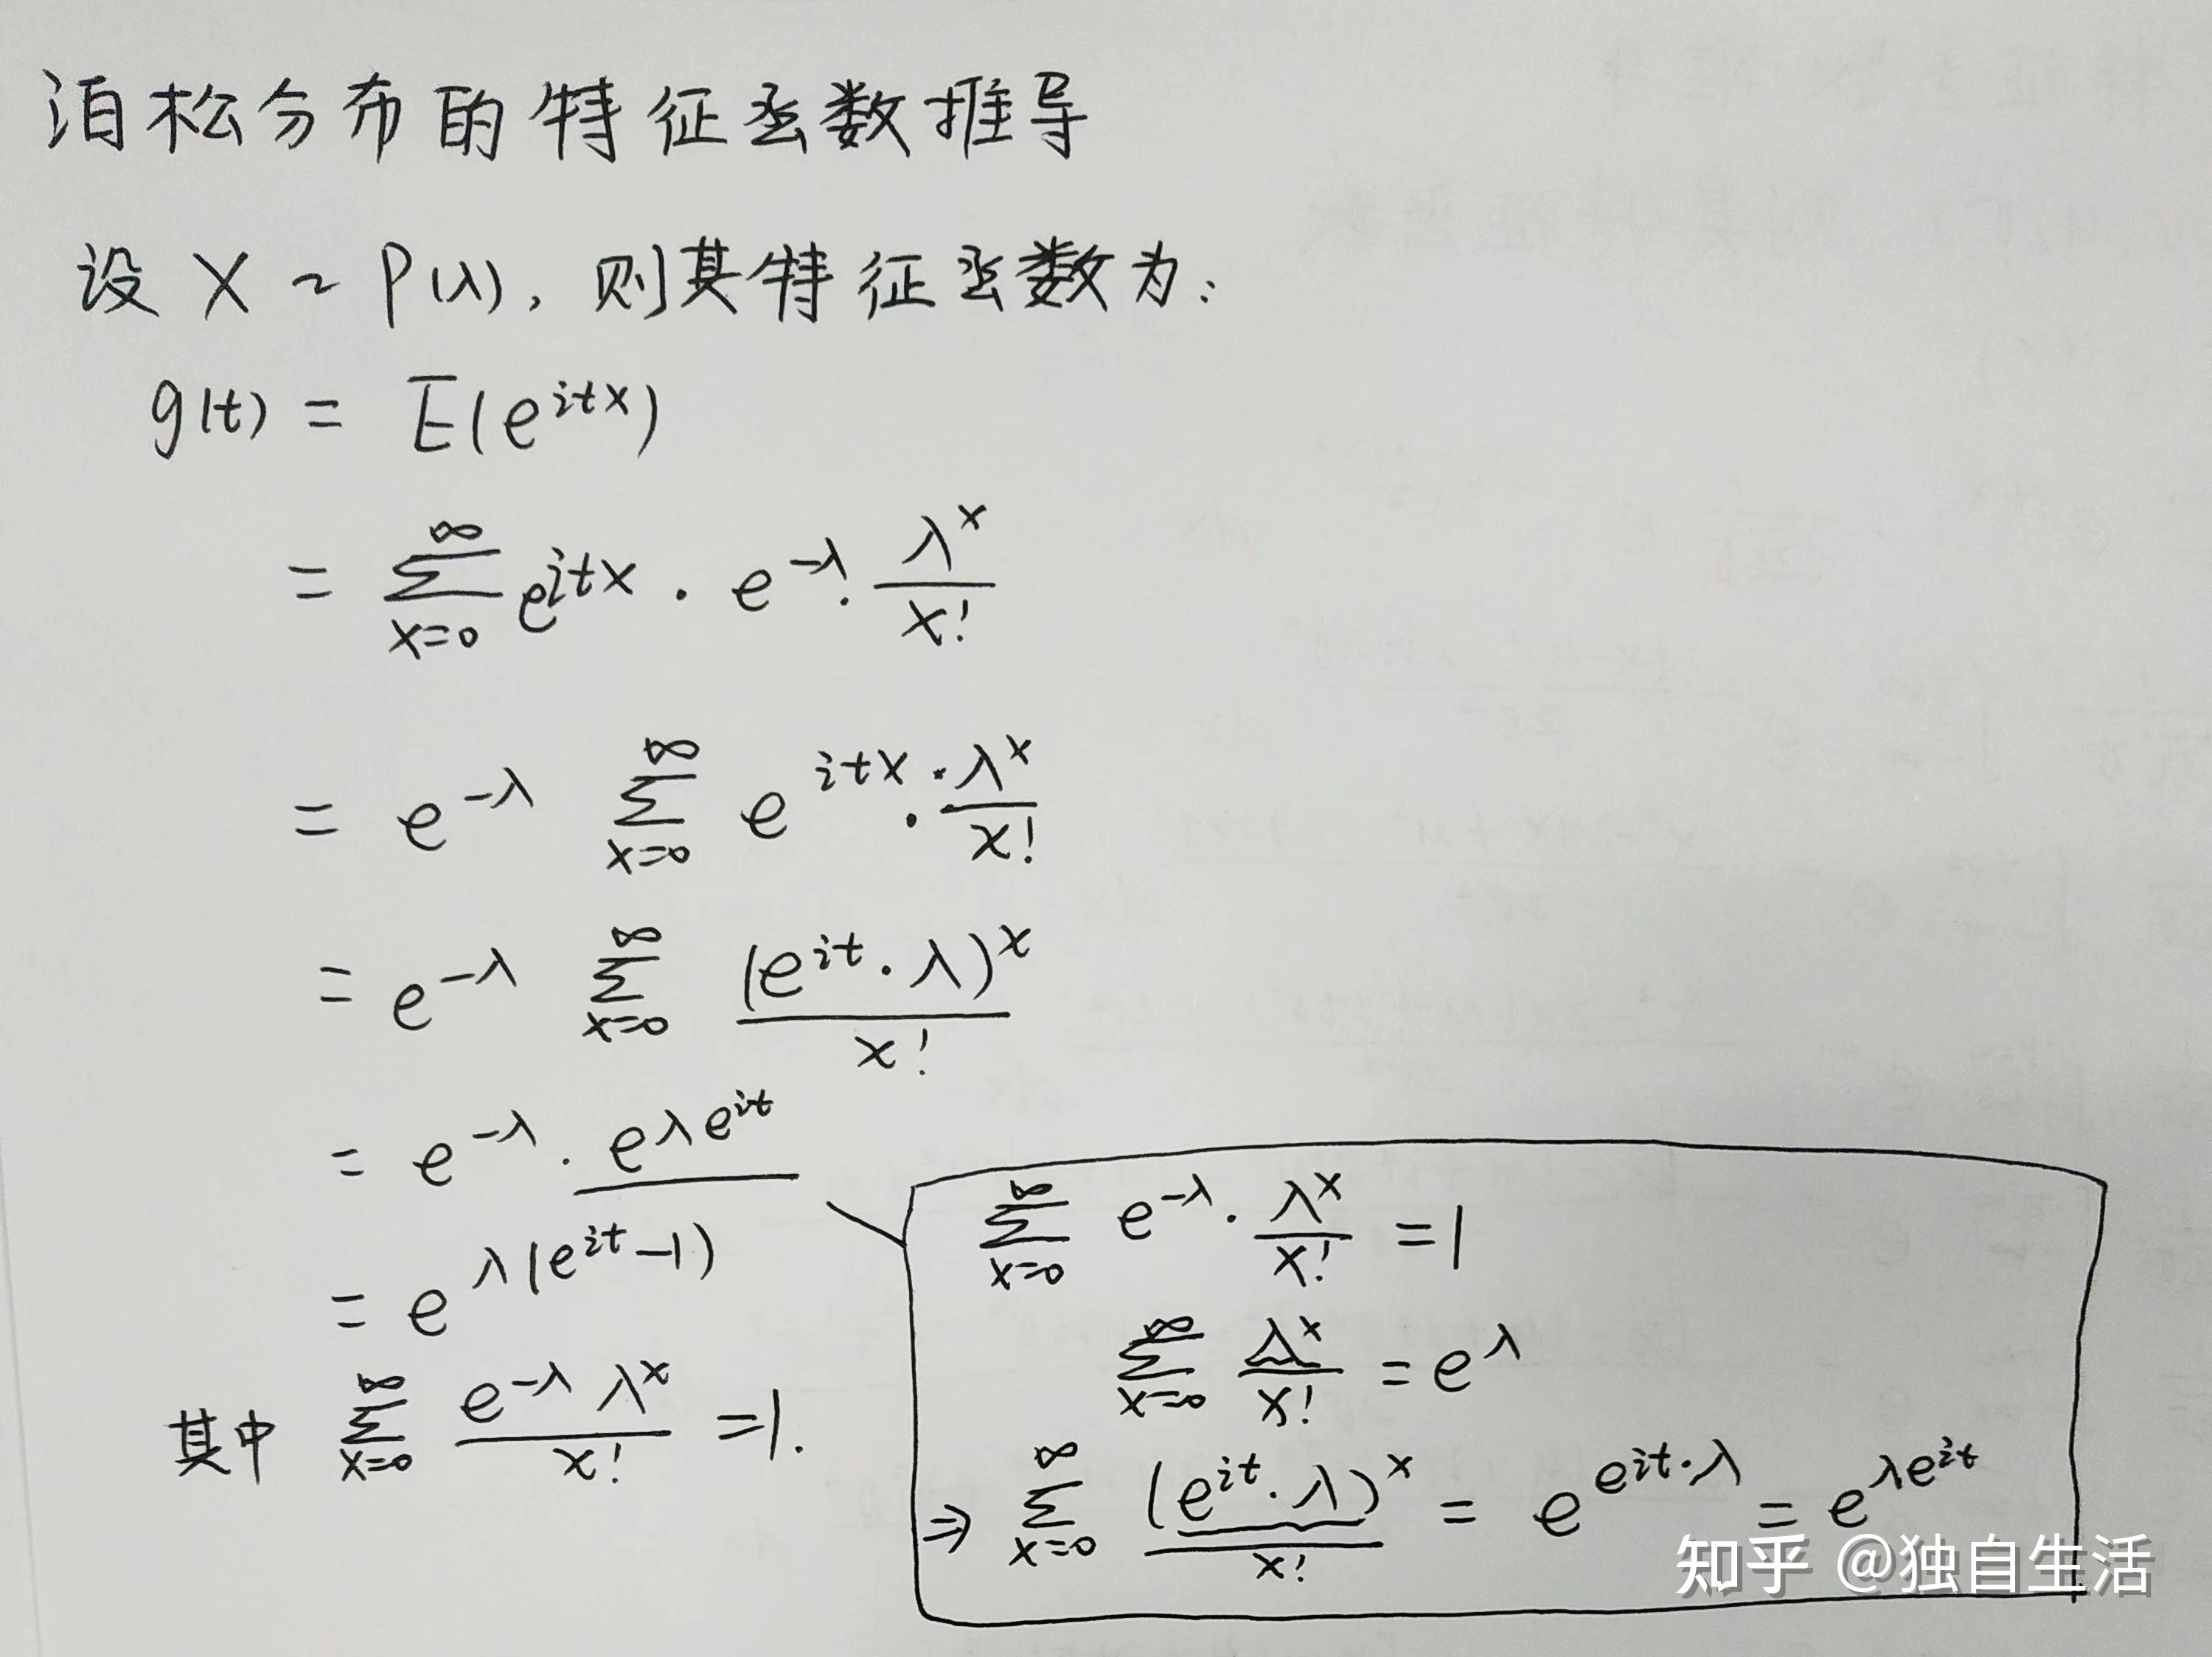 泊松分布的特征函数推导
设 X ~ P(λ), 则其特征函数为:
g(t) = E(e^{itx})
= \sum_{x=0}^{∞} e^{itx} · e^{-λ} · \frac{λ^x}{x!}
= e^{-λ} \sum_{x=0}^{∞} e^{itx} · \frac{λ^x}{x!}
= e^{-λ} \sum_{x=0}^{∞} \frac{(e^{it} · λ)^x}{x!}
= e^{-λ} · e^{λe^{it}}
= e^{λ(e^{it}-1)}
其中 \sum_{x=0}^{∞} \frac{e^{-λ} λ^x}{x!} = 1.
\sum_{x=0}^{∞} e^{-λ} · \frac{λ^x}{x!} = 1
\sum_{x=0}^{∞} \frac{λ^x}{x!} = e^λ
⇒ \sum_{x=0}^{∞} \frac{(e^{it} · λ)^x}{x!} = e^{e^{it}·λ} = e^{λe^{it}}
知乎 @独自生活